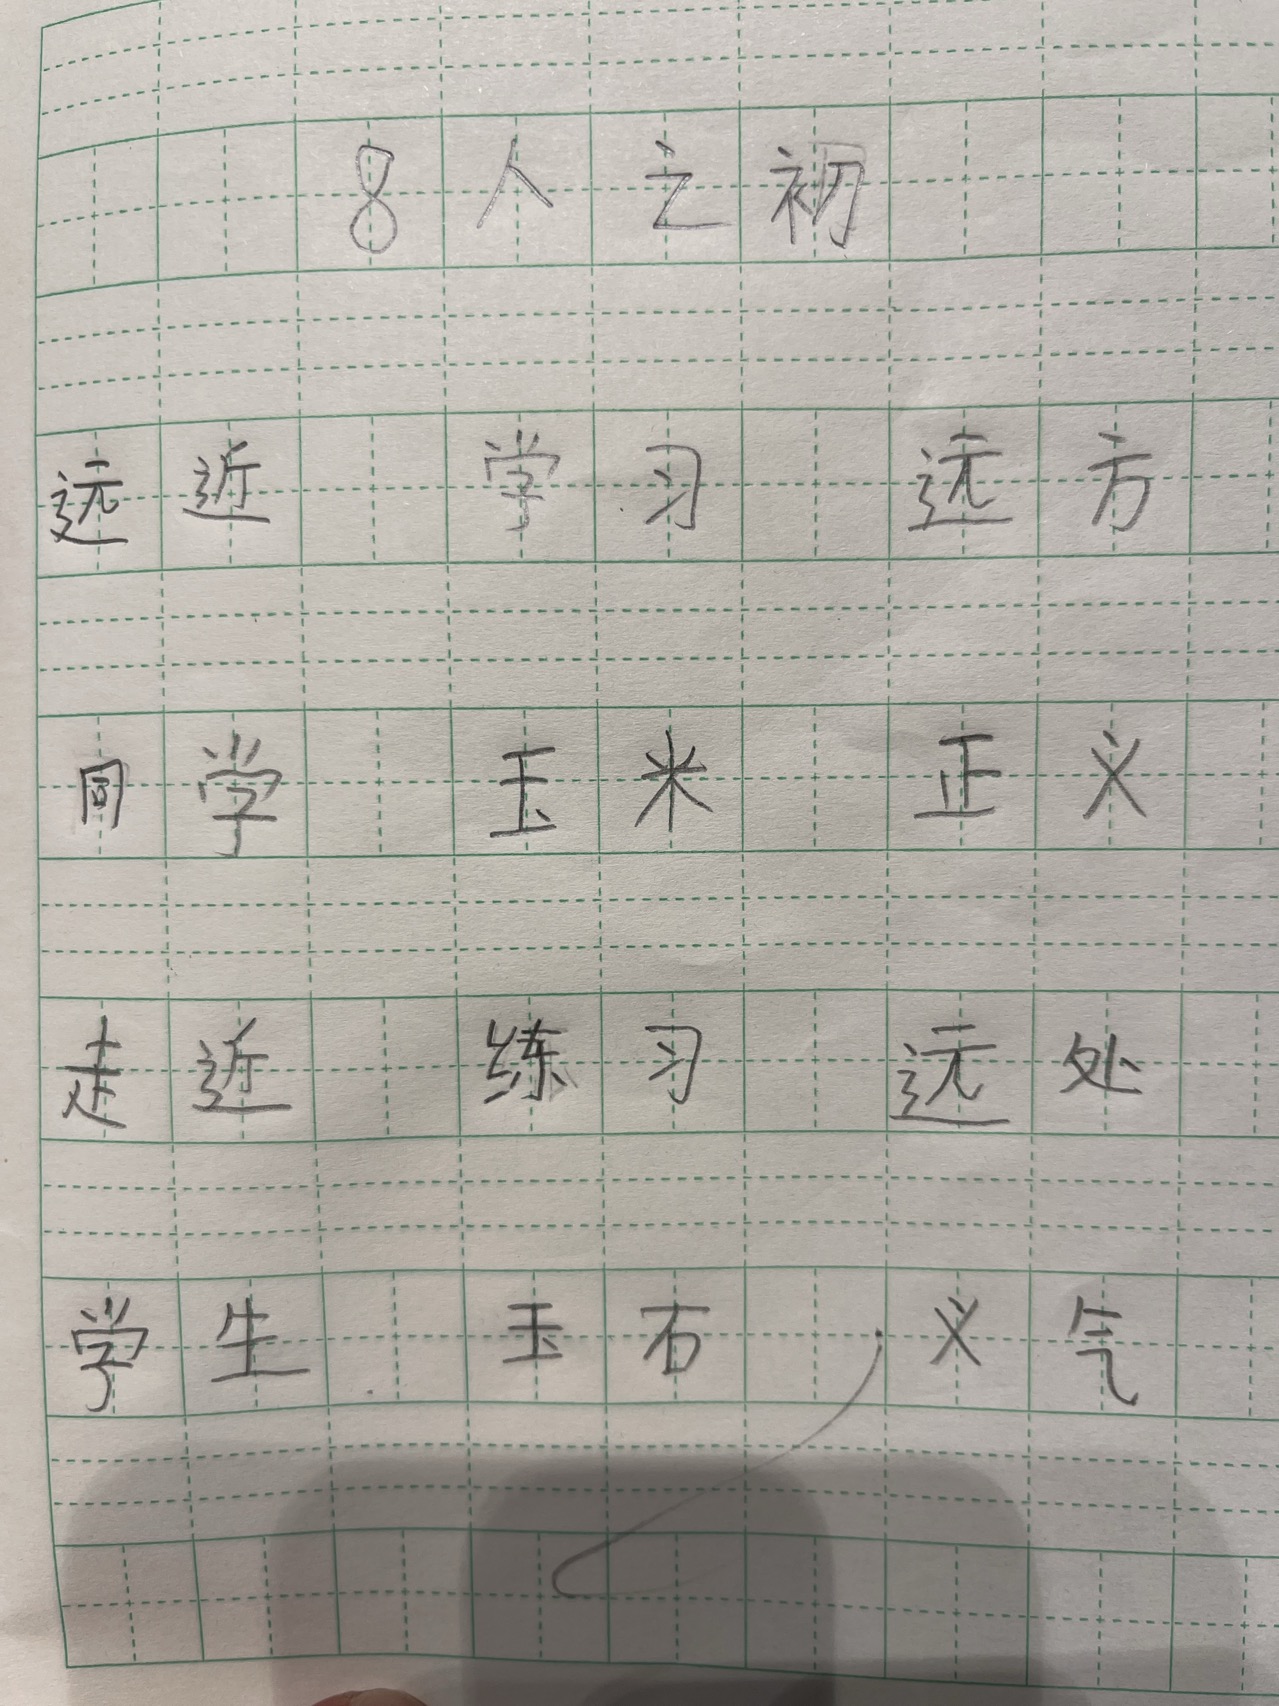 8人之初
远近 学习 远方
同学 玉米 正义
走近 练习 远处
学生 玉石 义气